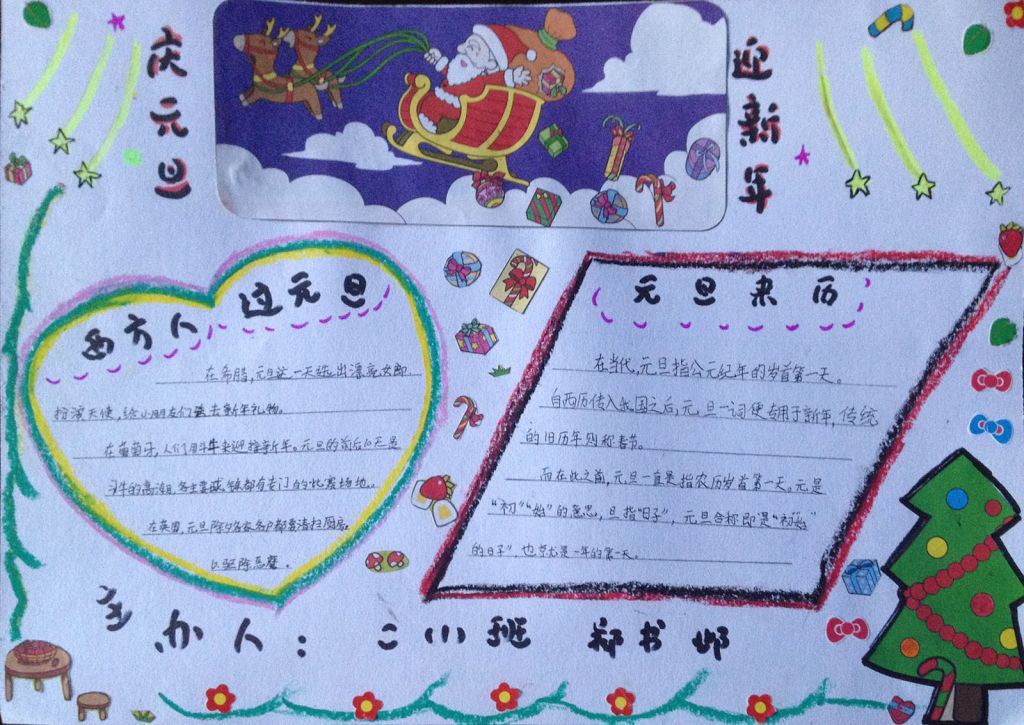 庆元旦
迎新年
西方人过元旦
在希腊,元旦这一天选出漂亮女郎
扮演天使,给小朋友们送去新年礼物。
在葡萄牙,人们用斗牛来迎接新年。元旦的前后10天是
斗牛的高潮,各主要城镇都有专门的比赛场地。
在英国,元旦除夕各家各户都要清扫厨房,
以驱除恶魔。
元旦来历
在当代,元旦指公元纪年的岁首第一天。
自西历传入我国之后,元旦一词便专用于新年,传统
的旧历年则称春节。
而在此之前,元旦一直是指农历岁首第一天。元是
“初”“始”的意思,旦指“日子”,元旦合称即是“初始
的日子”,也就是一年的第一天。
主办人: 二(1)班 郑书